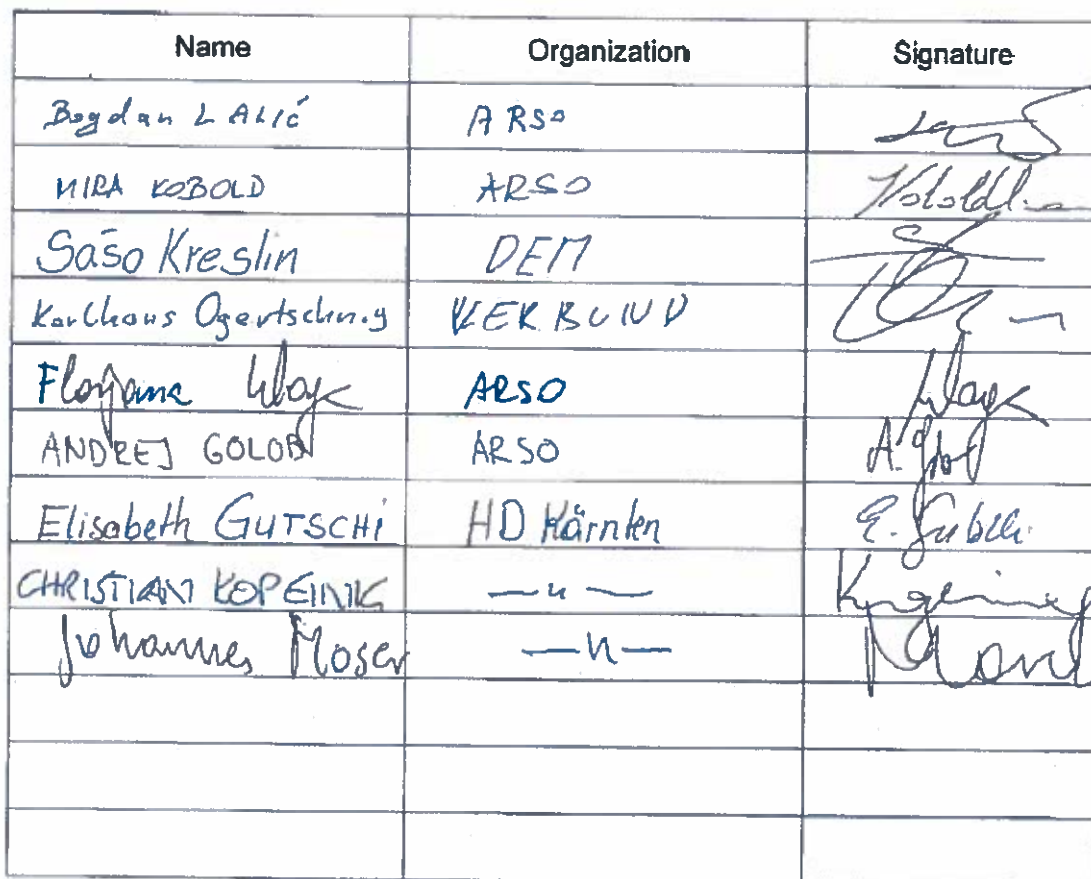 Name Organization Signature
Bogdan LALIĆ ARSO
MIRA KOBOLD ARSO
Sašo Kreslin DEM
Karlhans Ogertschnig VERBUND
Florjana Ulaga ARSO
ANDREJ GOLOB ARSO A. Golob
Elisabeth GUTSCHI HD Kärnten E. Gutschi
CHRISTIAN KOPEINIG —"—
Johannes Moser —"—